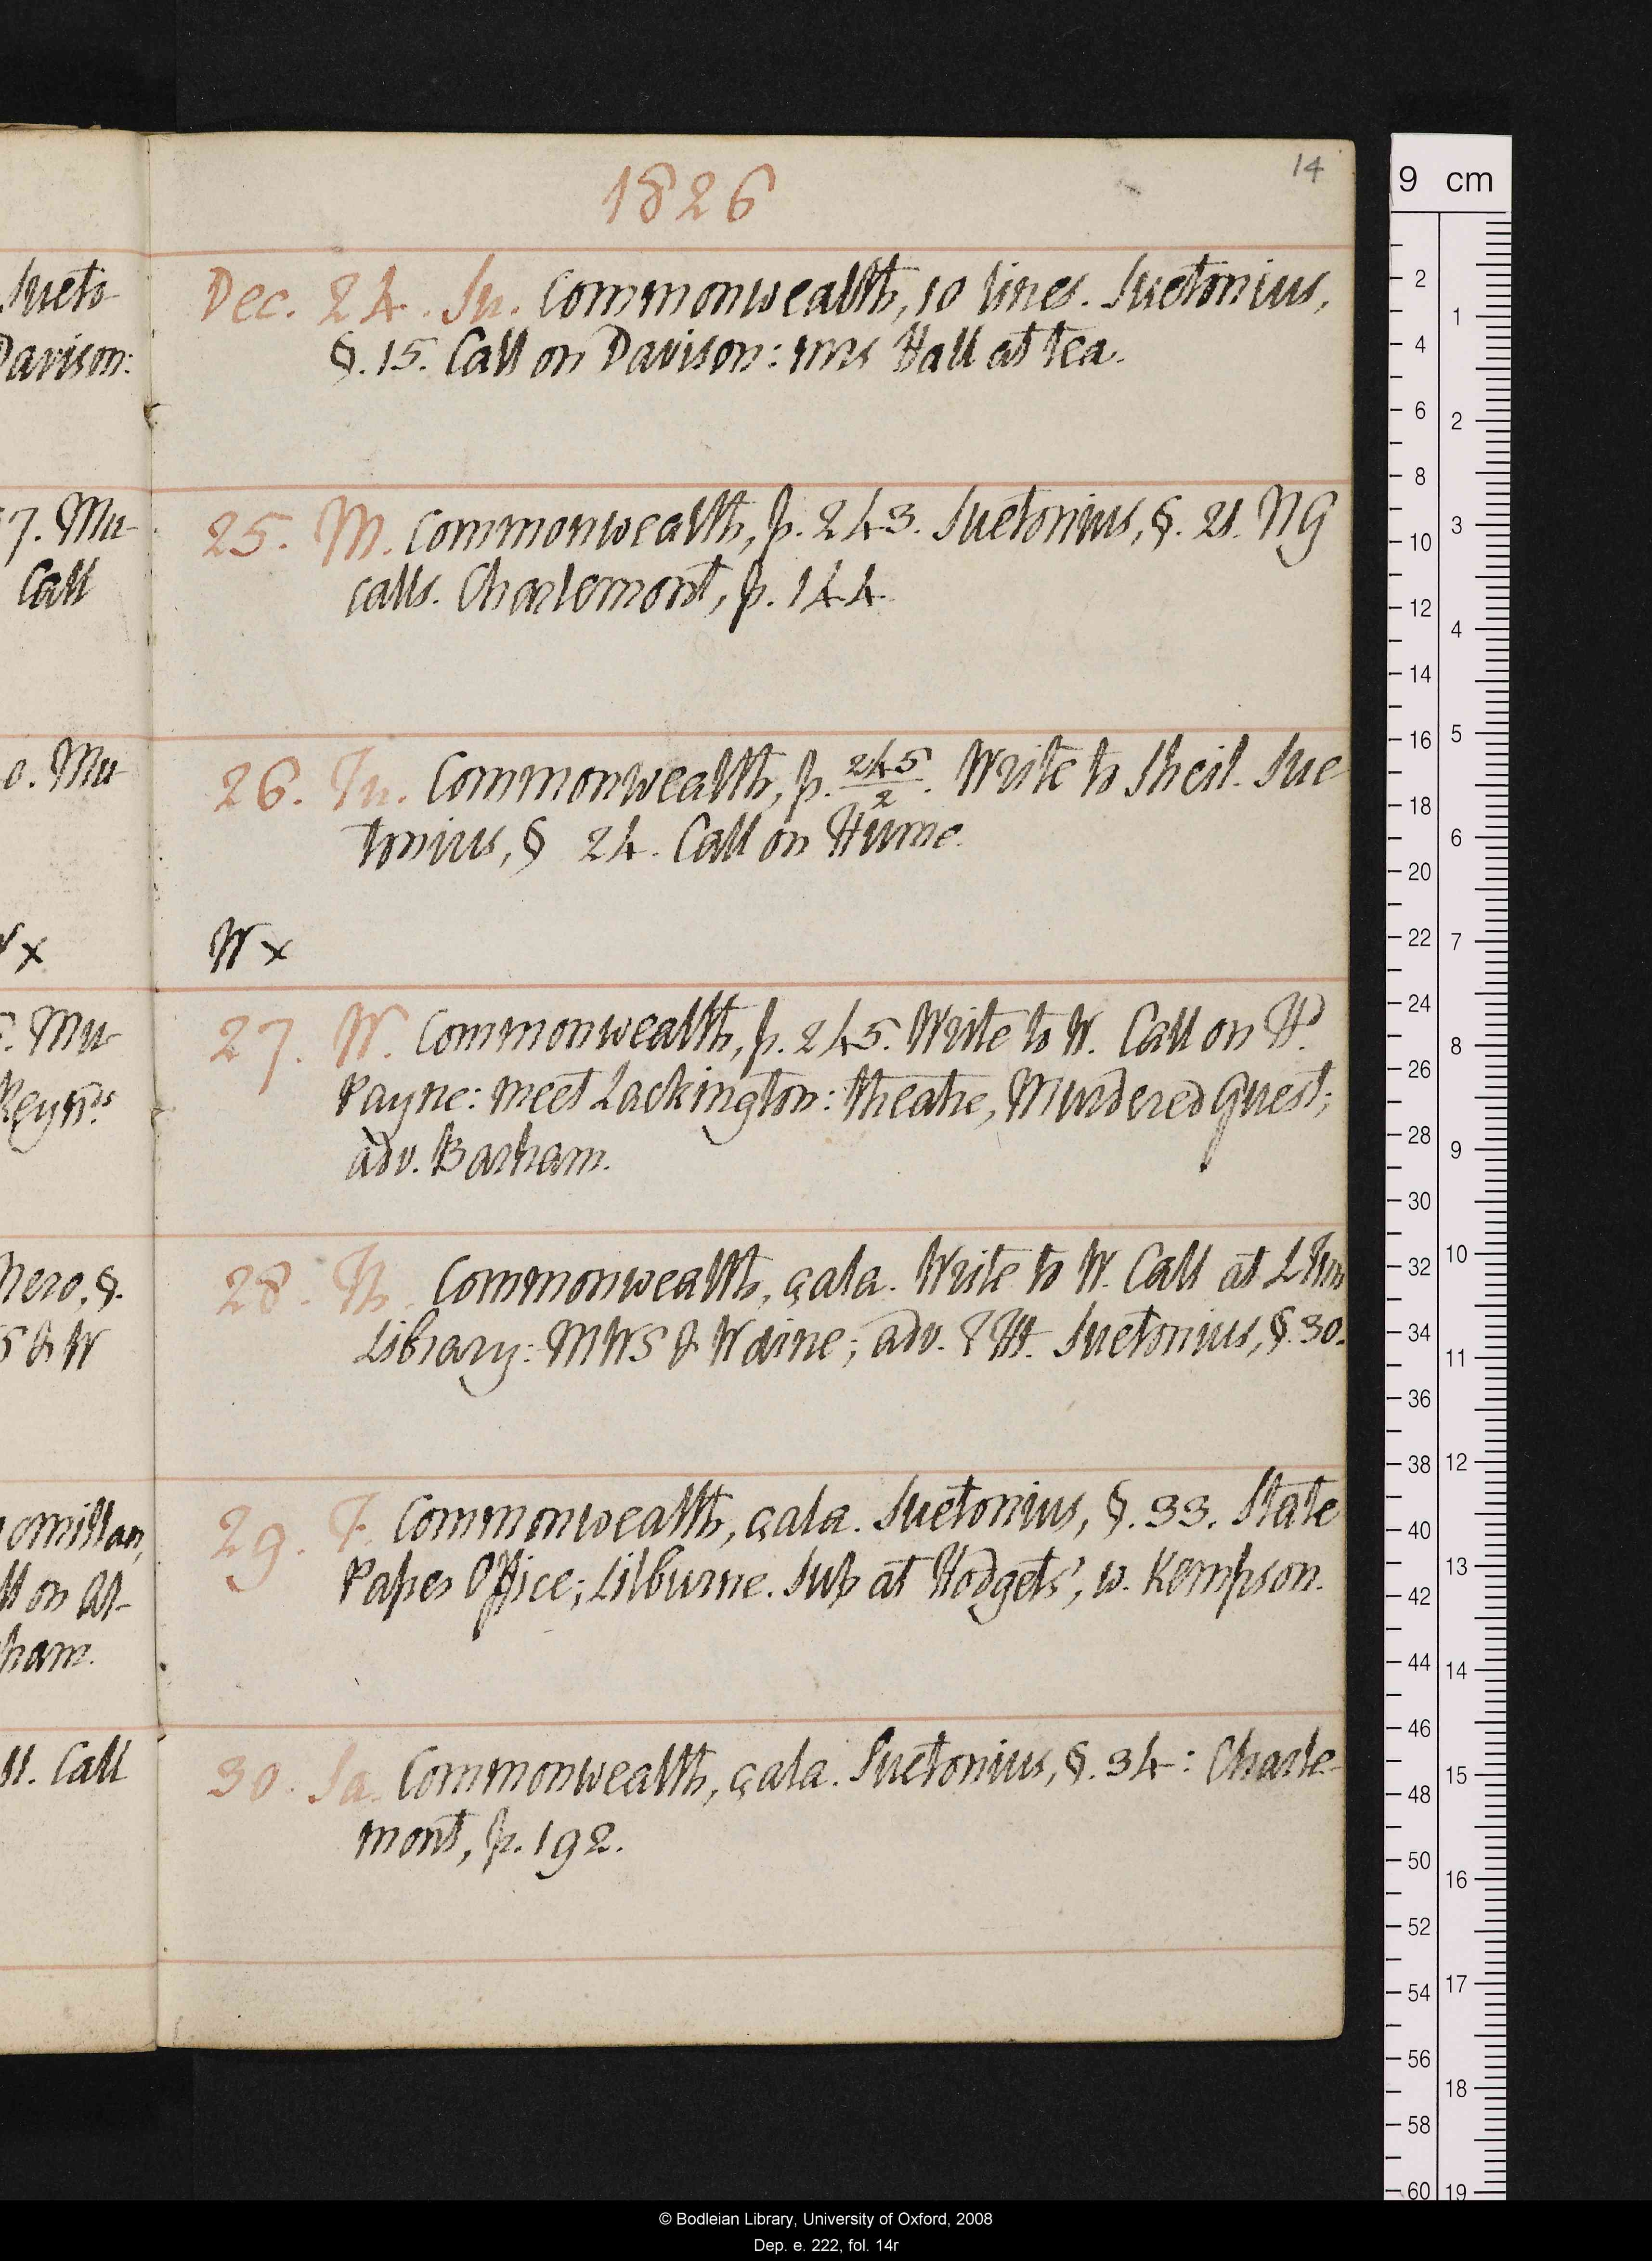 1826
14
Sueto
Davison:
7. Mu-
Call
0. Mu-
x
Mu-
Reyn.ds
Nero, §.
S & W
omillan,
ll on M-
ham.
11. Call
Dec. 24. Su. Commonwealth, 10 lines. Suetonius,
§. 15. Call on Davison: mrs Hall at tea.
25. M. Commonwealth, p. 243. Suetonius, §. 21. NG
calls. Charlemont, p. 144.
26. Tu. Commonwealth, p. 245/2. Write to Sheil. Sue
tonius, § 24. Call on Hume.
W x
27. W. Commonwealth, p. 245. Write to W. Call on Hd
Payne: meet Lackington: theatre, Murdered Guest;
adv. Barham.
28. Th. Commonwealth, çala. Write to W. Call at
Library: MWS & W dine; adv. Suetonius, §. 30.
29. F. Commonwealth, çala. Suetonius, §. 33. State
Paper Office; Lilburne. Sup at Hodgets', w. Kempson.
30. Sa. Commonwealth, çala. Suetonius, §. 34: Charle-
mont, p. 192.
9 cm
2
4
6
8
10
12
14
16
18
20
22
24
26
28
30
32
34
36
38
40
42
44
46
48
50
52
54
56
58
60
1
2
3
4
5
6
7
8
9
10
11
12
13
14
15
16
17
18
19
© Bodleian Library, University of Oxford, 2008
Dep. e. 222, fol. 14r